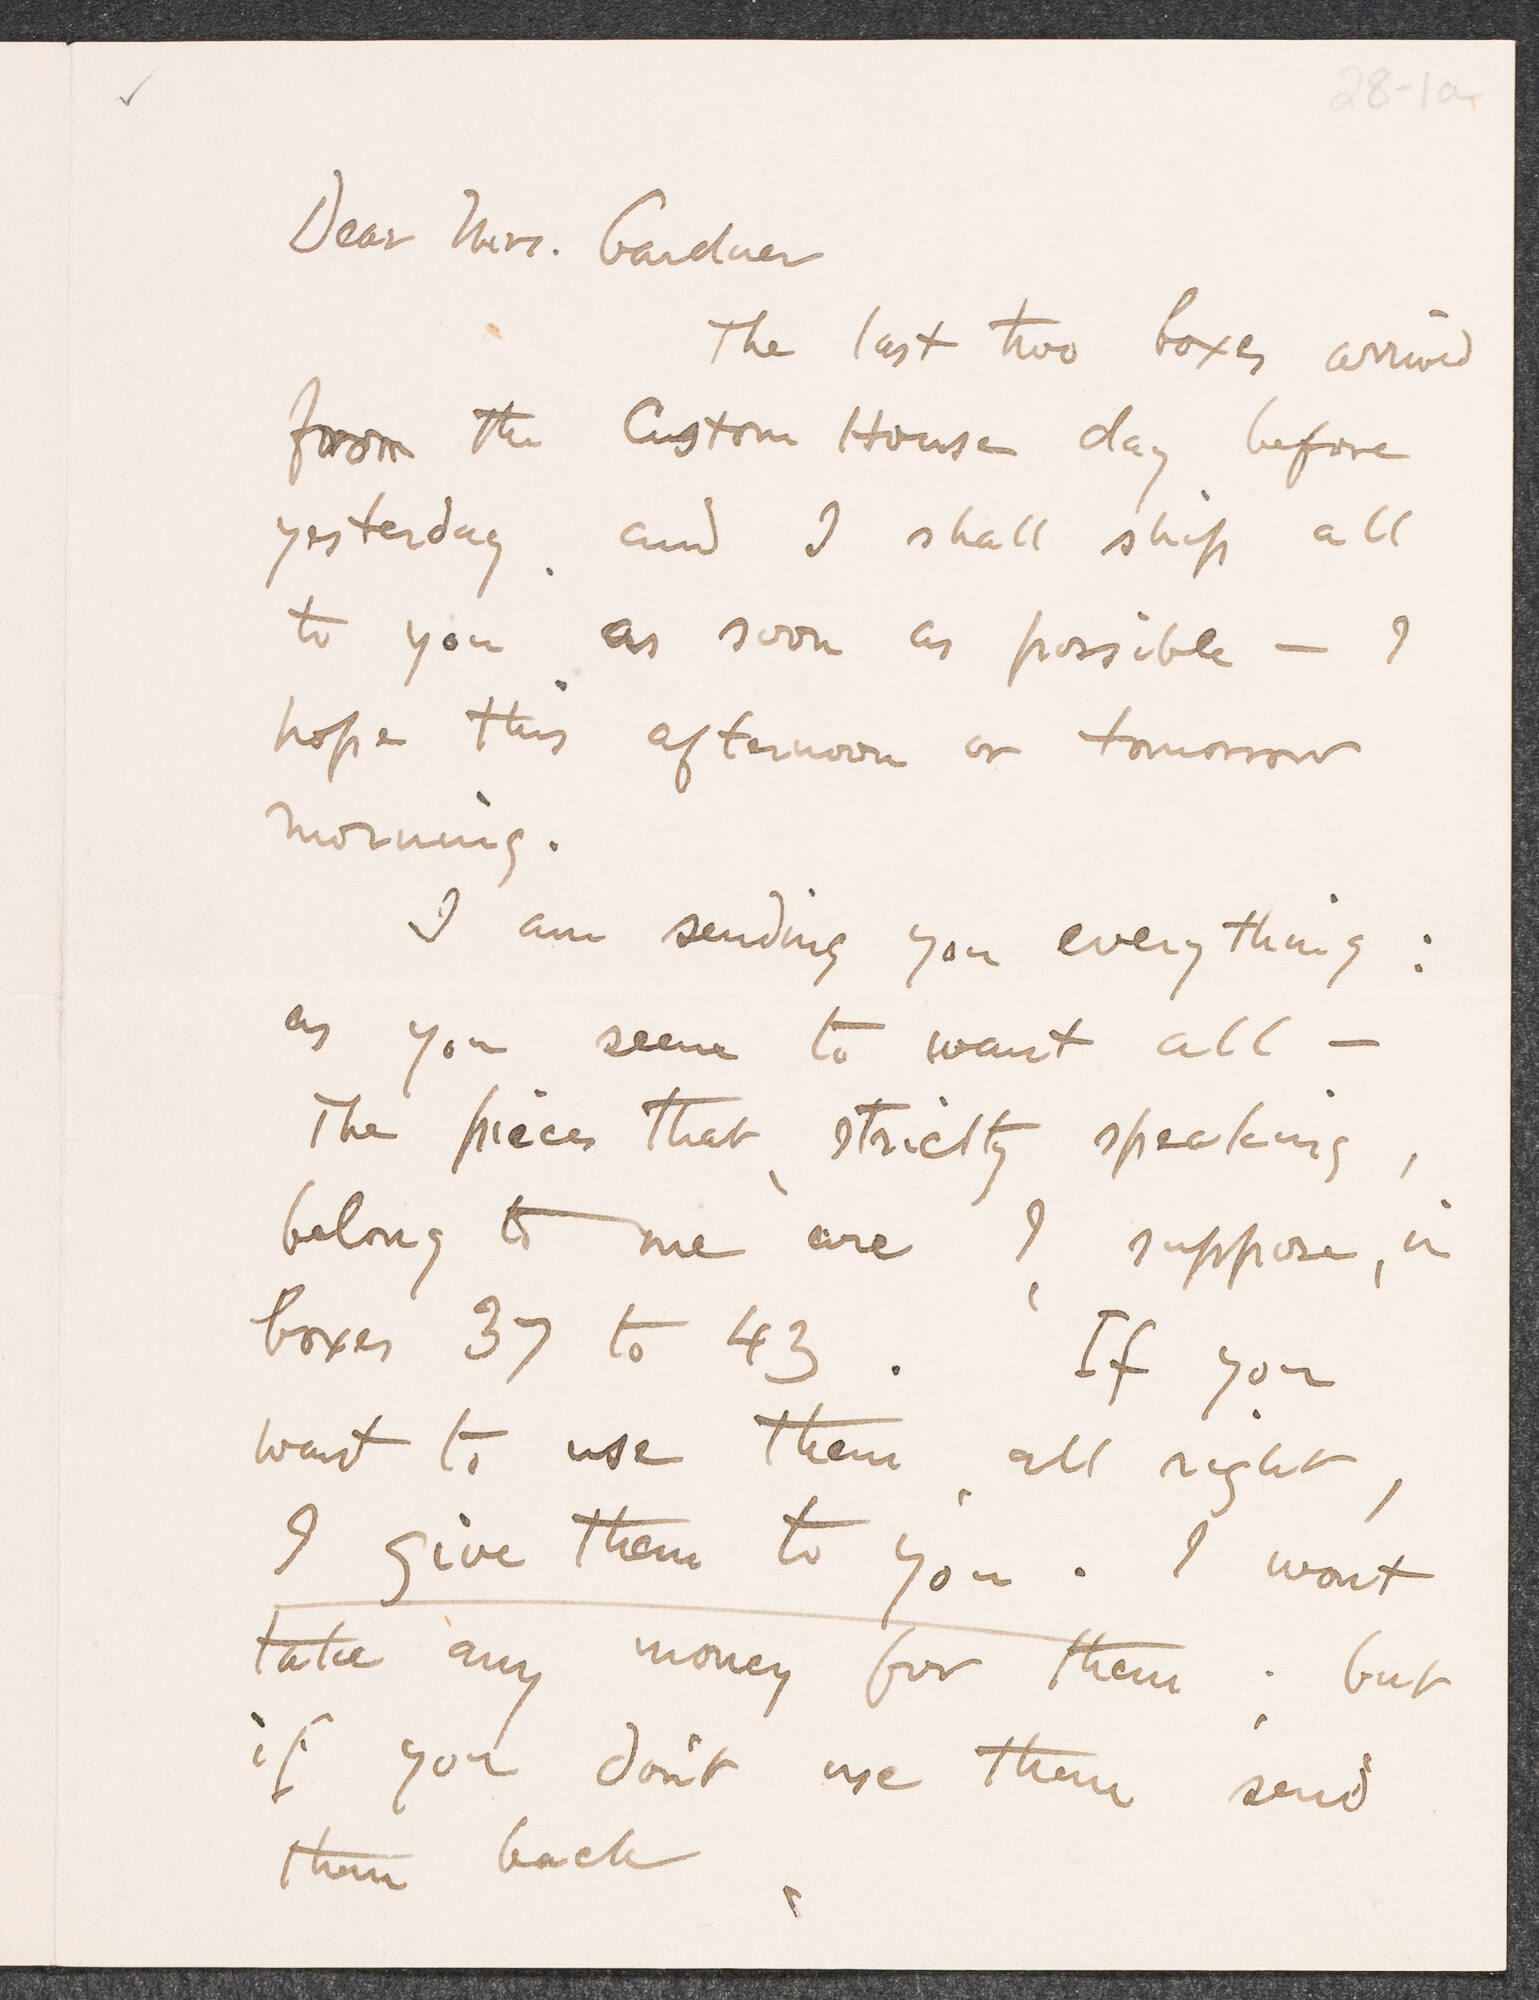 28-1a
Dear Mrs. Gardner
The last two boxes arrived
from the Custom House day before
yesterday. and I shall ship all
to you, as soon as possible — I
hope this afternoon or tomorrow
morning.
I am sending you everything:
as you seem to want all —
The pieces that, strictly speaking,
belong to me are, I suppose, in
boxes 37 to 43. If you
want to use them, all right,
I give them to you. I wont
take any money for them; but
if you don't use them send
them back,